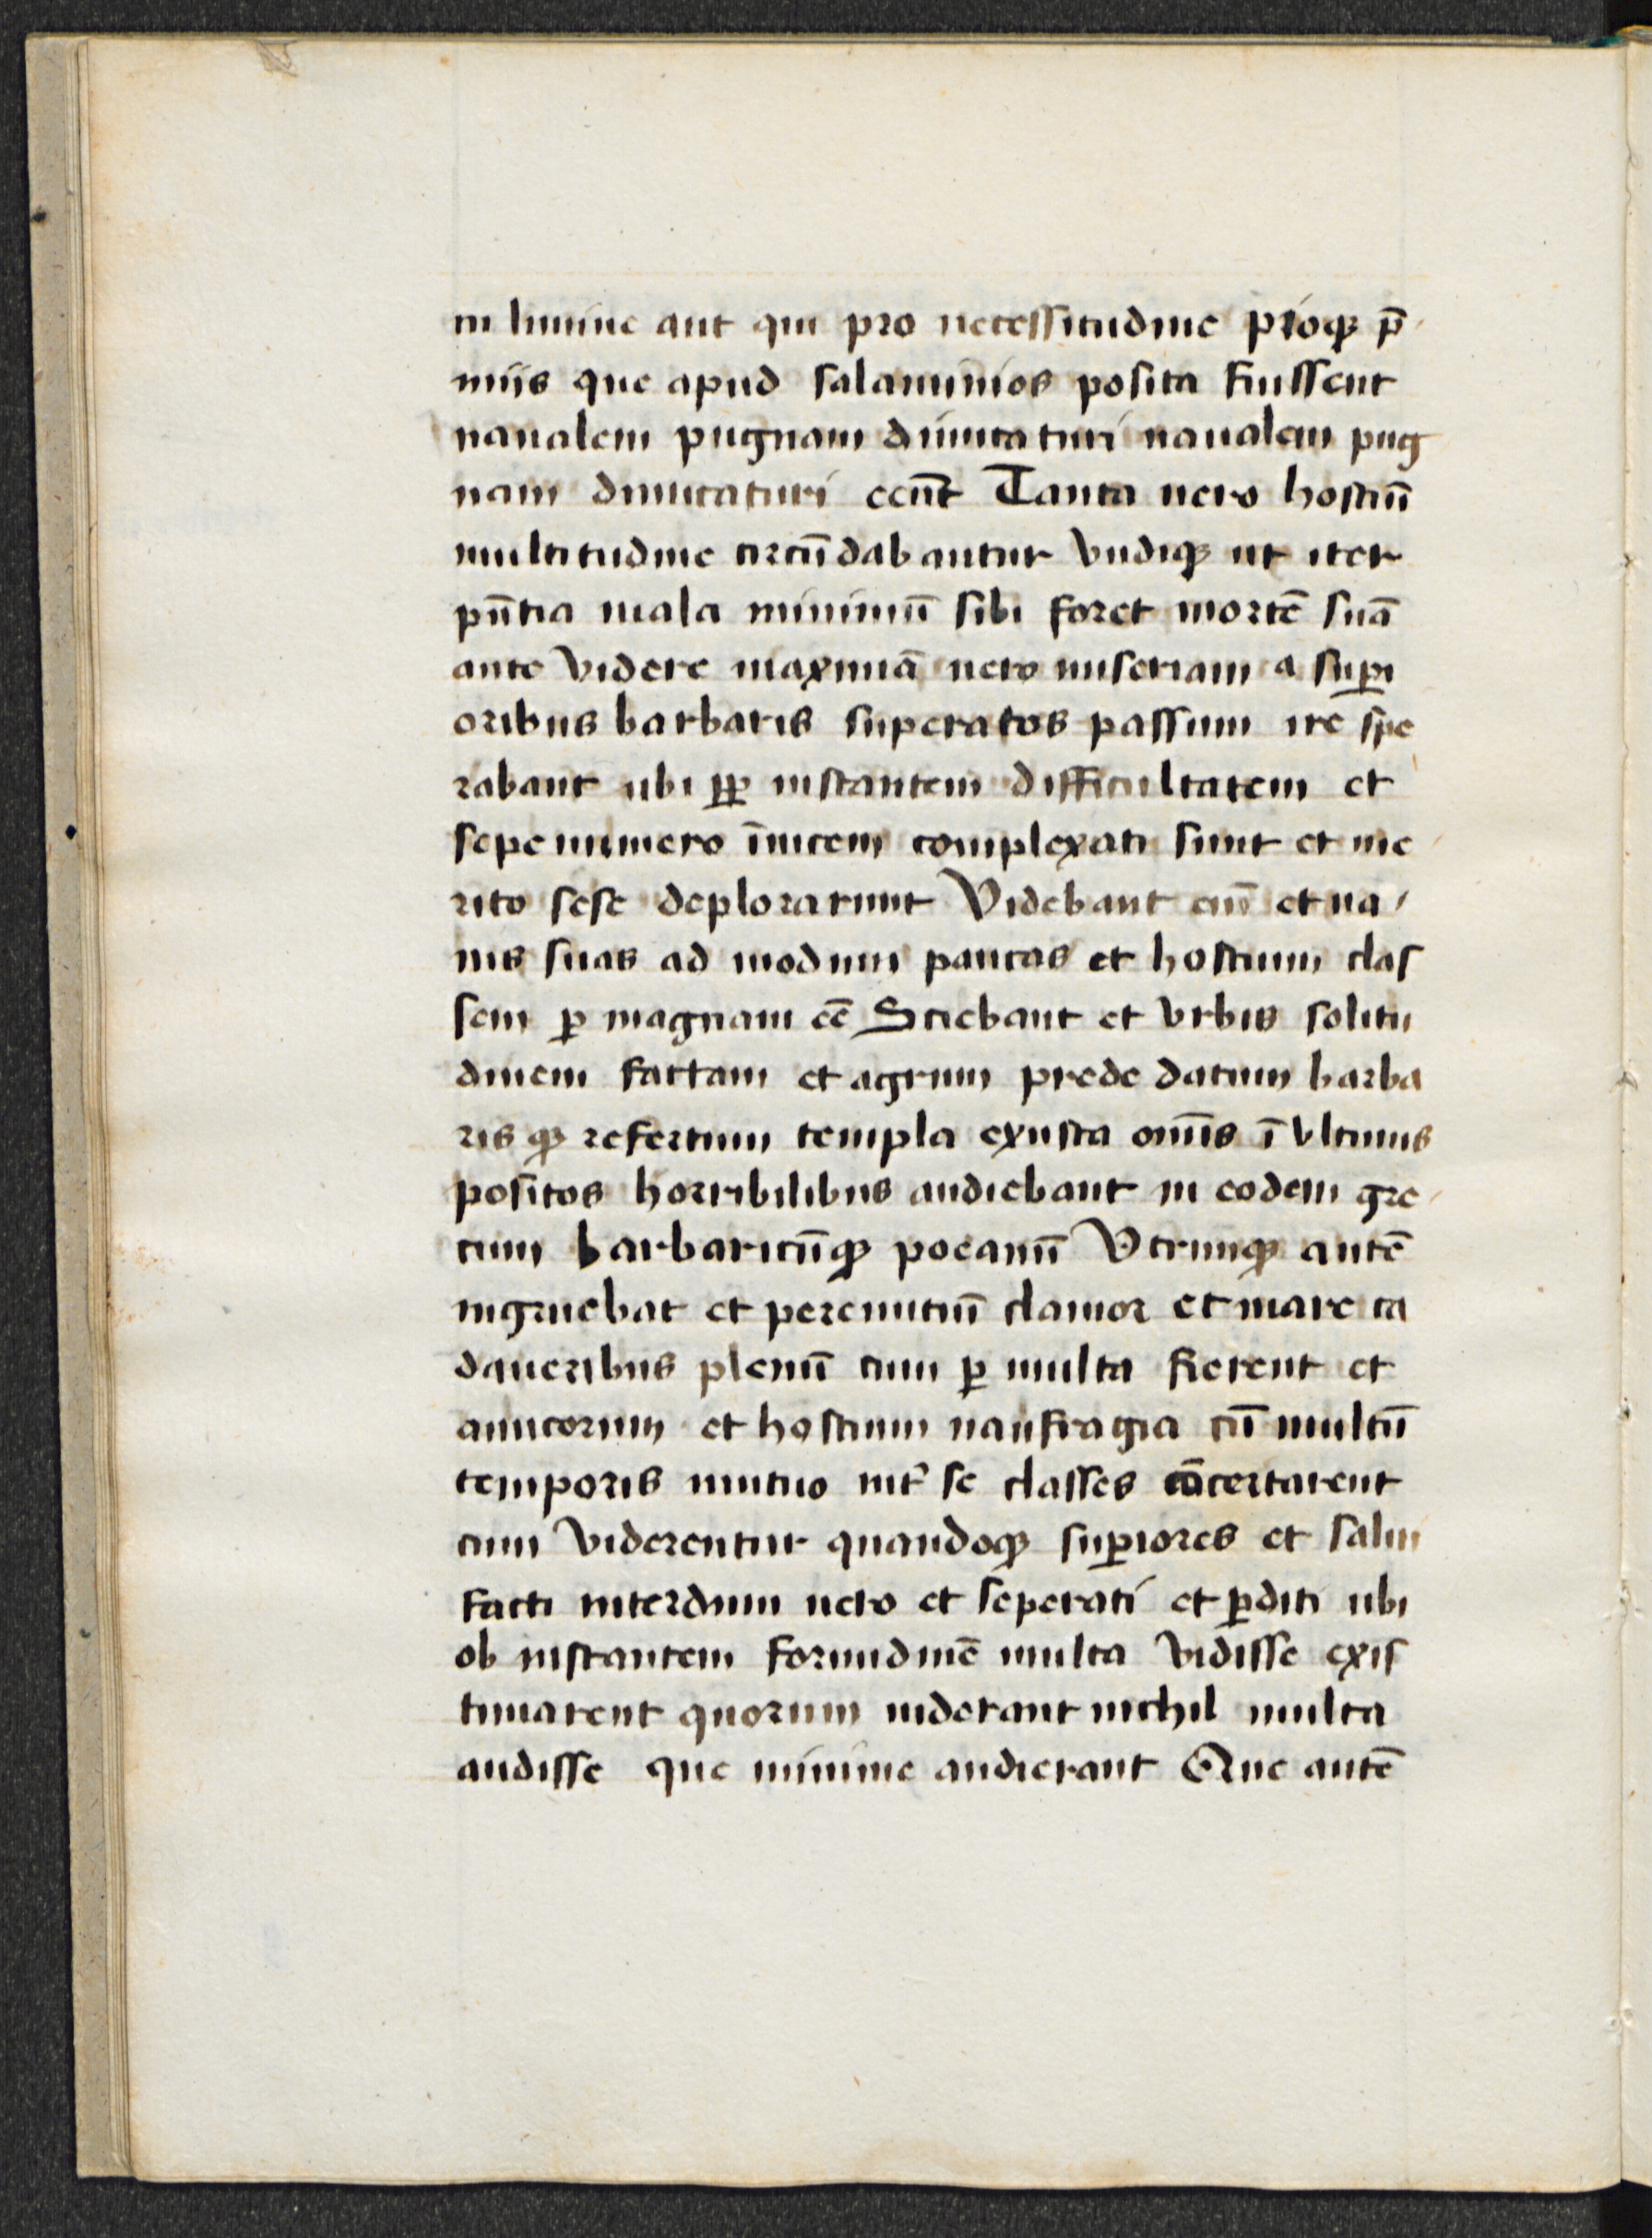 in limine aut qui pro necessitudine proqꝫ p̄
miis que apud salaminios posita fuissent
naualem pugnam dimicaturi naualem pug
nam dimicaturi eēnt Tanta uero hostiū
multitudine circūdabantur vndiqꝫ ut iter
pn̄tia mala minimū sibi foret mortē suā
ante videre maximā uero miseriam a suꝑi
oribus barbaris superatos passum ire spe
rabant ubi ꝓꝑ instantem difficultatem et
sepe numero īuicem complexati sunt et me
rito sese deplorarunt Videbant eni̅ et na
uis suas ad modum paucas et hostium clas
sem ꝑ magnam eē Sciebant et vrbis solitu
dinem factam et agrum prede datum barba
ris qꝫ refertum templa exusta om̄is ī vltimis
positos horribilibus audiebant in eodem gre
cum barbaricūqꝫ poeanū Vtrunqꝫ autē
ingruebat et pereuntiū clamor et mare ca
daueribus plenū cum ꝑ multa fierent et
amicorum et hostium naufragia cū multū
temporis mutuo int̓ se classes cōcertarent
cum viderentur quandoqꝫ suꝑiores et salui
facti interdum uero et seperati et ꝑditi ubi
ob instantem formidinē multa vidisse exis
timarent quorum uiderant nichil multa
audisse que minime audierant Que autē